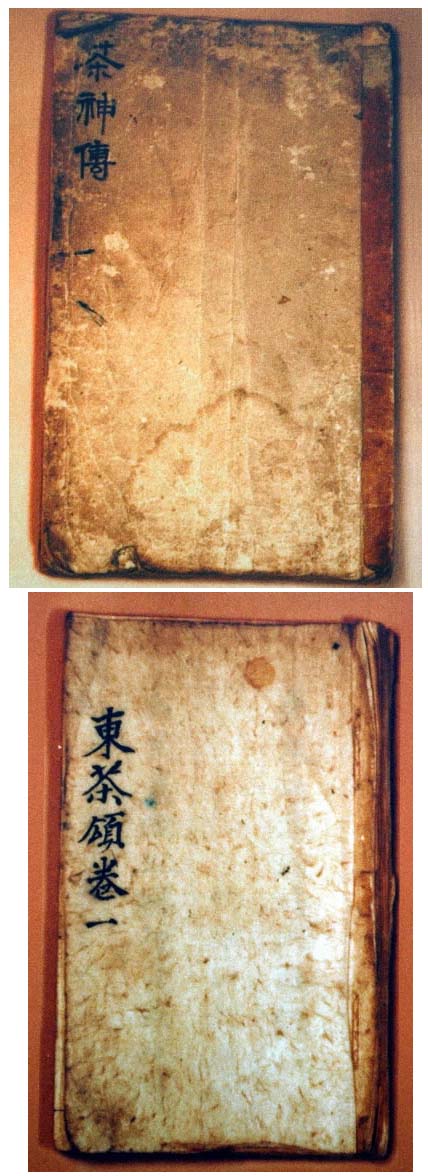 茶神傳
一
東茶頌卷一